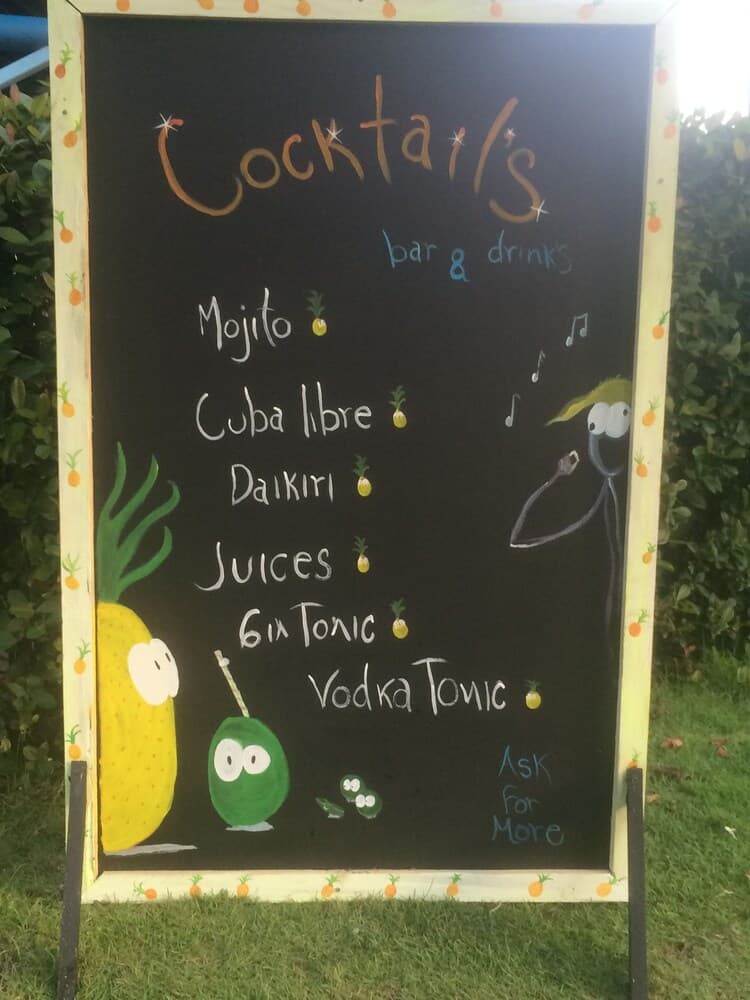 Cocktail's
bar & drink's
Mojito
Cuba libre
Daikiri
Juices
Gin Tonic
Vodka Tonic
Ask
For
More